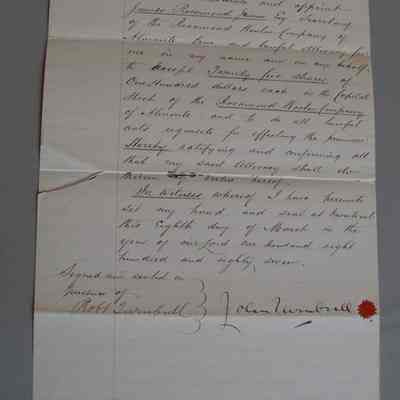 and appoint
James Rosamond Junior Esq. Secretary
of the Rosamond Woolen Company of
Almonte true and lawful Attorney for
me in my name and on my behalf
to accept Twenty five shares of
One Hundred dollars each in the Capital
Stock of the Rosamond Woolen Company
of Almonte and to do all lawful
acts requisite for effecting the premises
Hereby ratifying and confirming all
that my said Attorney shall do
therein by virtue hereof.
In witness whereof I have hereunto
set my hand and seal at Montreal
this Eighth day of March in the
year of our Lord one thousand eight
hundred and eighty seven.
Signed and sealed in
presence of
Robt Turnbull
John Turnbull